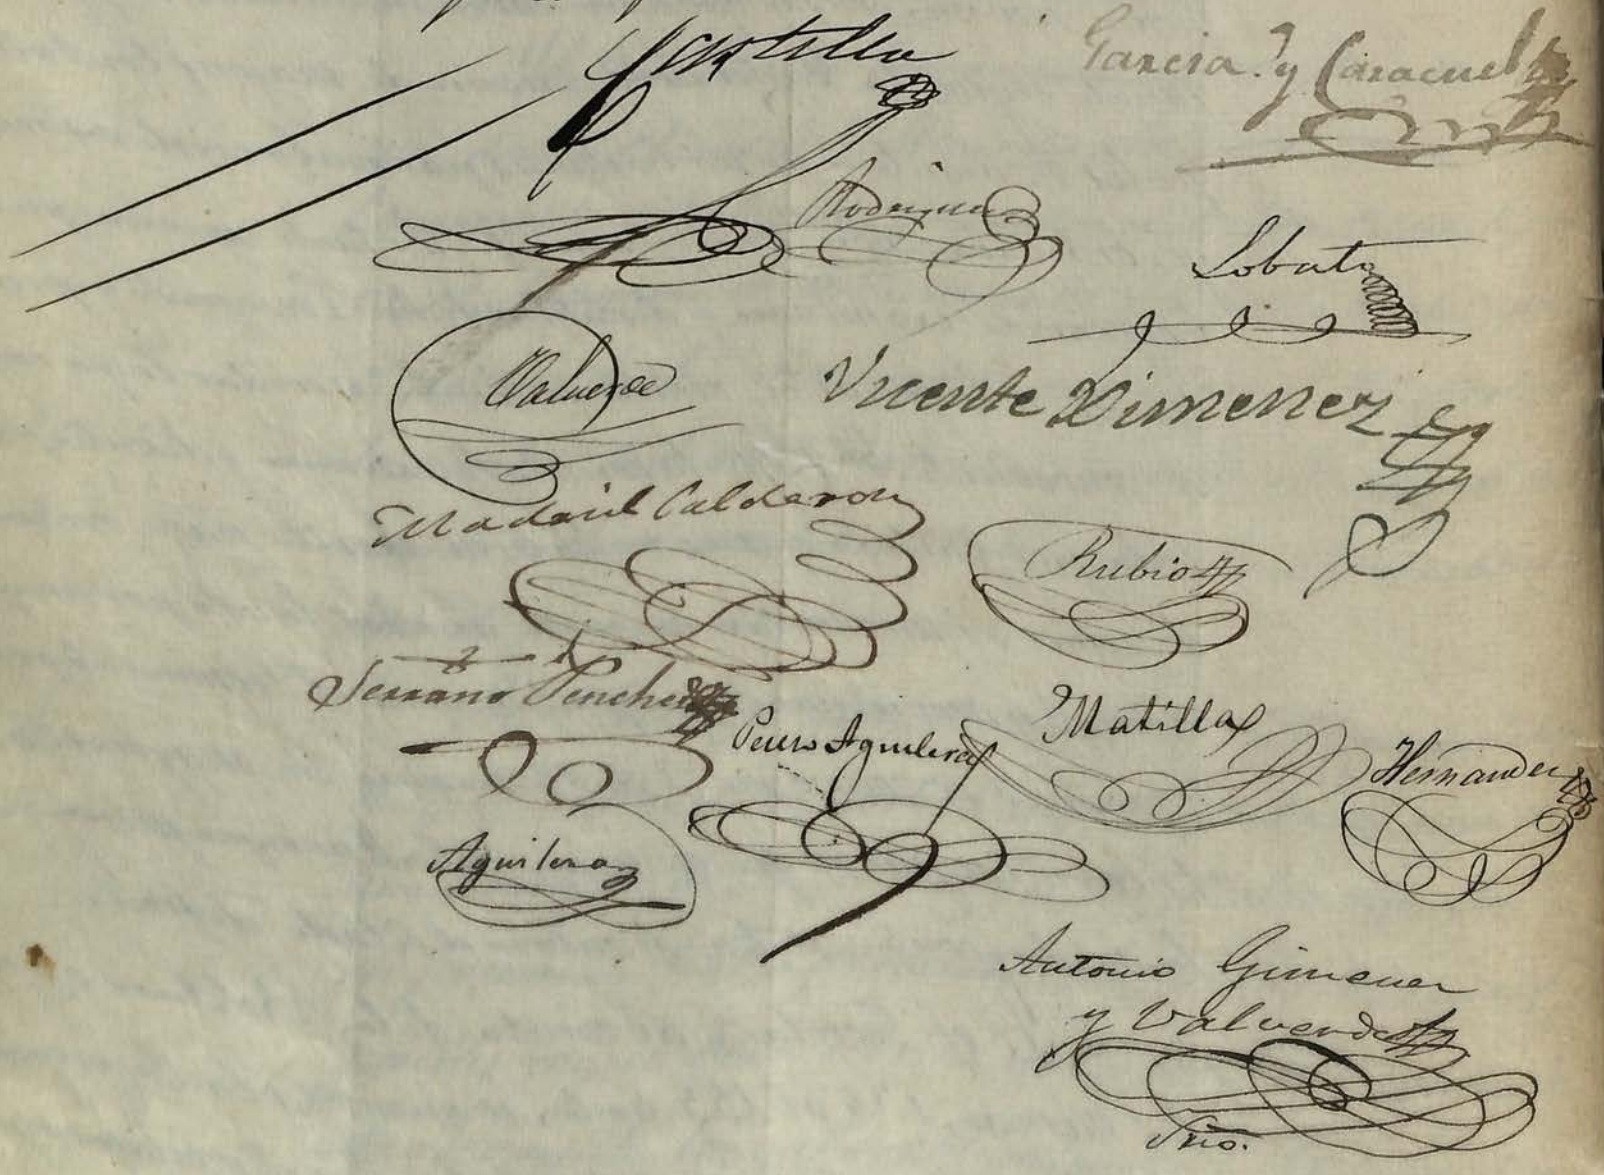 Castilla
Garcia y Caracuel
Rodriguez
Lobato
Valverde
Vicente Ximenez
Madrid Calderon
Rubio
Serrano
Pedro Aguilera
Matilla
Hernandez
Aguilera
Antonio Gimenez
y Valverde
Srio.